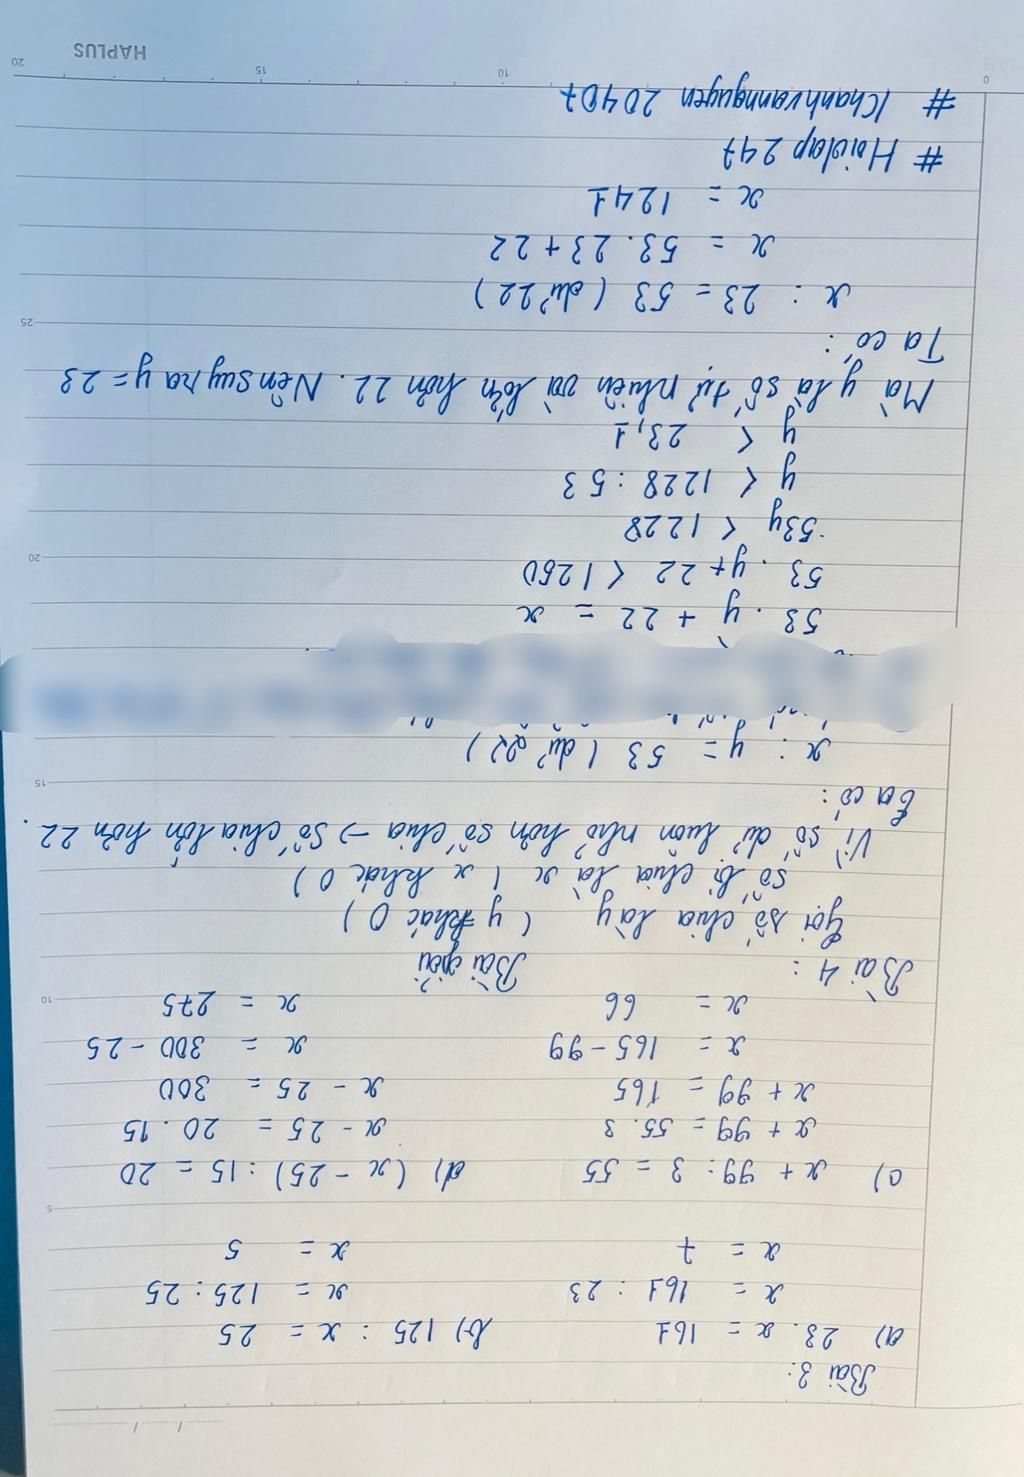 Bài 3:
a) 23. x = 161 b) 125 : x = 25
x = 161 : 23 x = 125 : 25
x = 7 x = 5
c) x + 99 : 3 = 55 d) (x - 25) : 15 = 20
x + 99 = 55. 3 x - 25 = 20 . 15
x + 99 = 165 x - 25 = 300
x = 165 - 99 x = 300 - 25
x = 66 x = 275
Bài 4 : Bài giải
Gọi số chia là y ( y khác 0 )
số bị chia là x ( x khác 0 )
Vì số dư luôn nhỏ hơn số chia → số chia lớn hơn 22 .
Ta có :
x : y = 53 ( dư 22 )
53 . y + 22 = x
53 . y + 22 < 1250
53y < 1228
y < 1228 : 53
y < 23,1
Mà y là số tự nhiên và lớn hơn 22. Nên suy ra y = 23
Ta có :
x : 23 = 53 ( dư 22 )
x = 53. 23 + 22
x = 1241
# Hoidap 247
# Khanhvannguyen 20407
HAPLUS